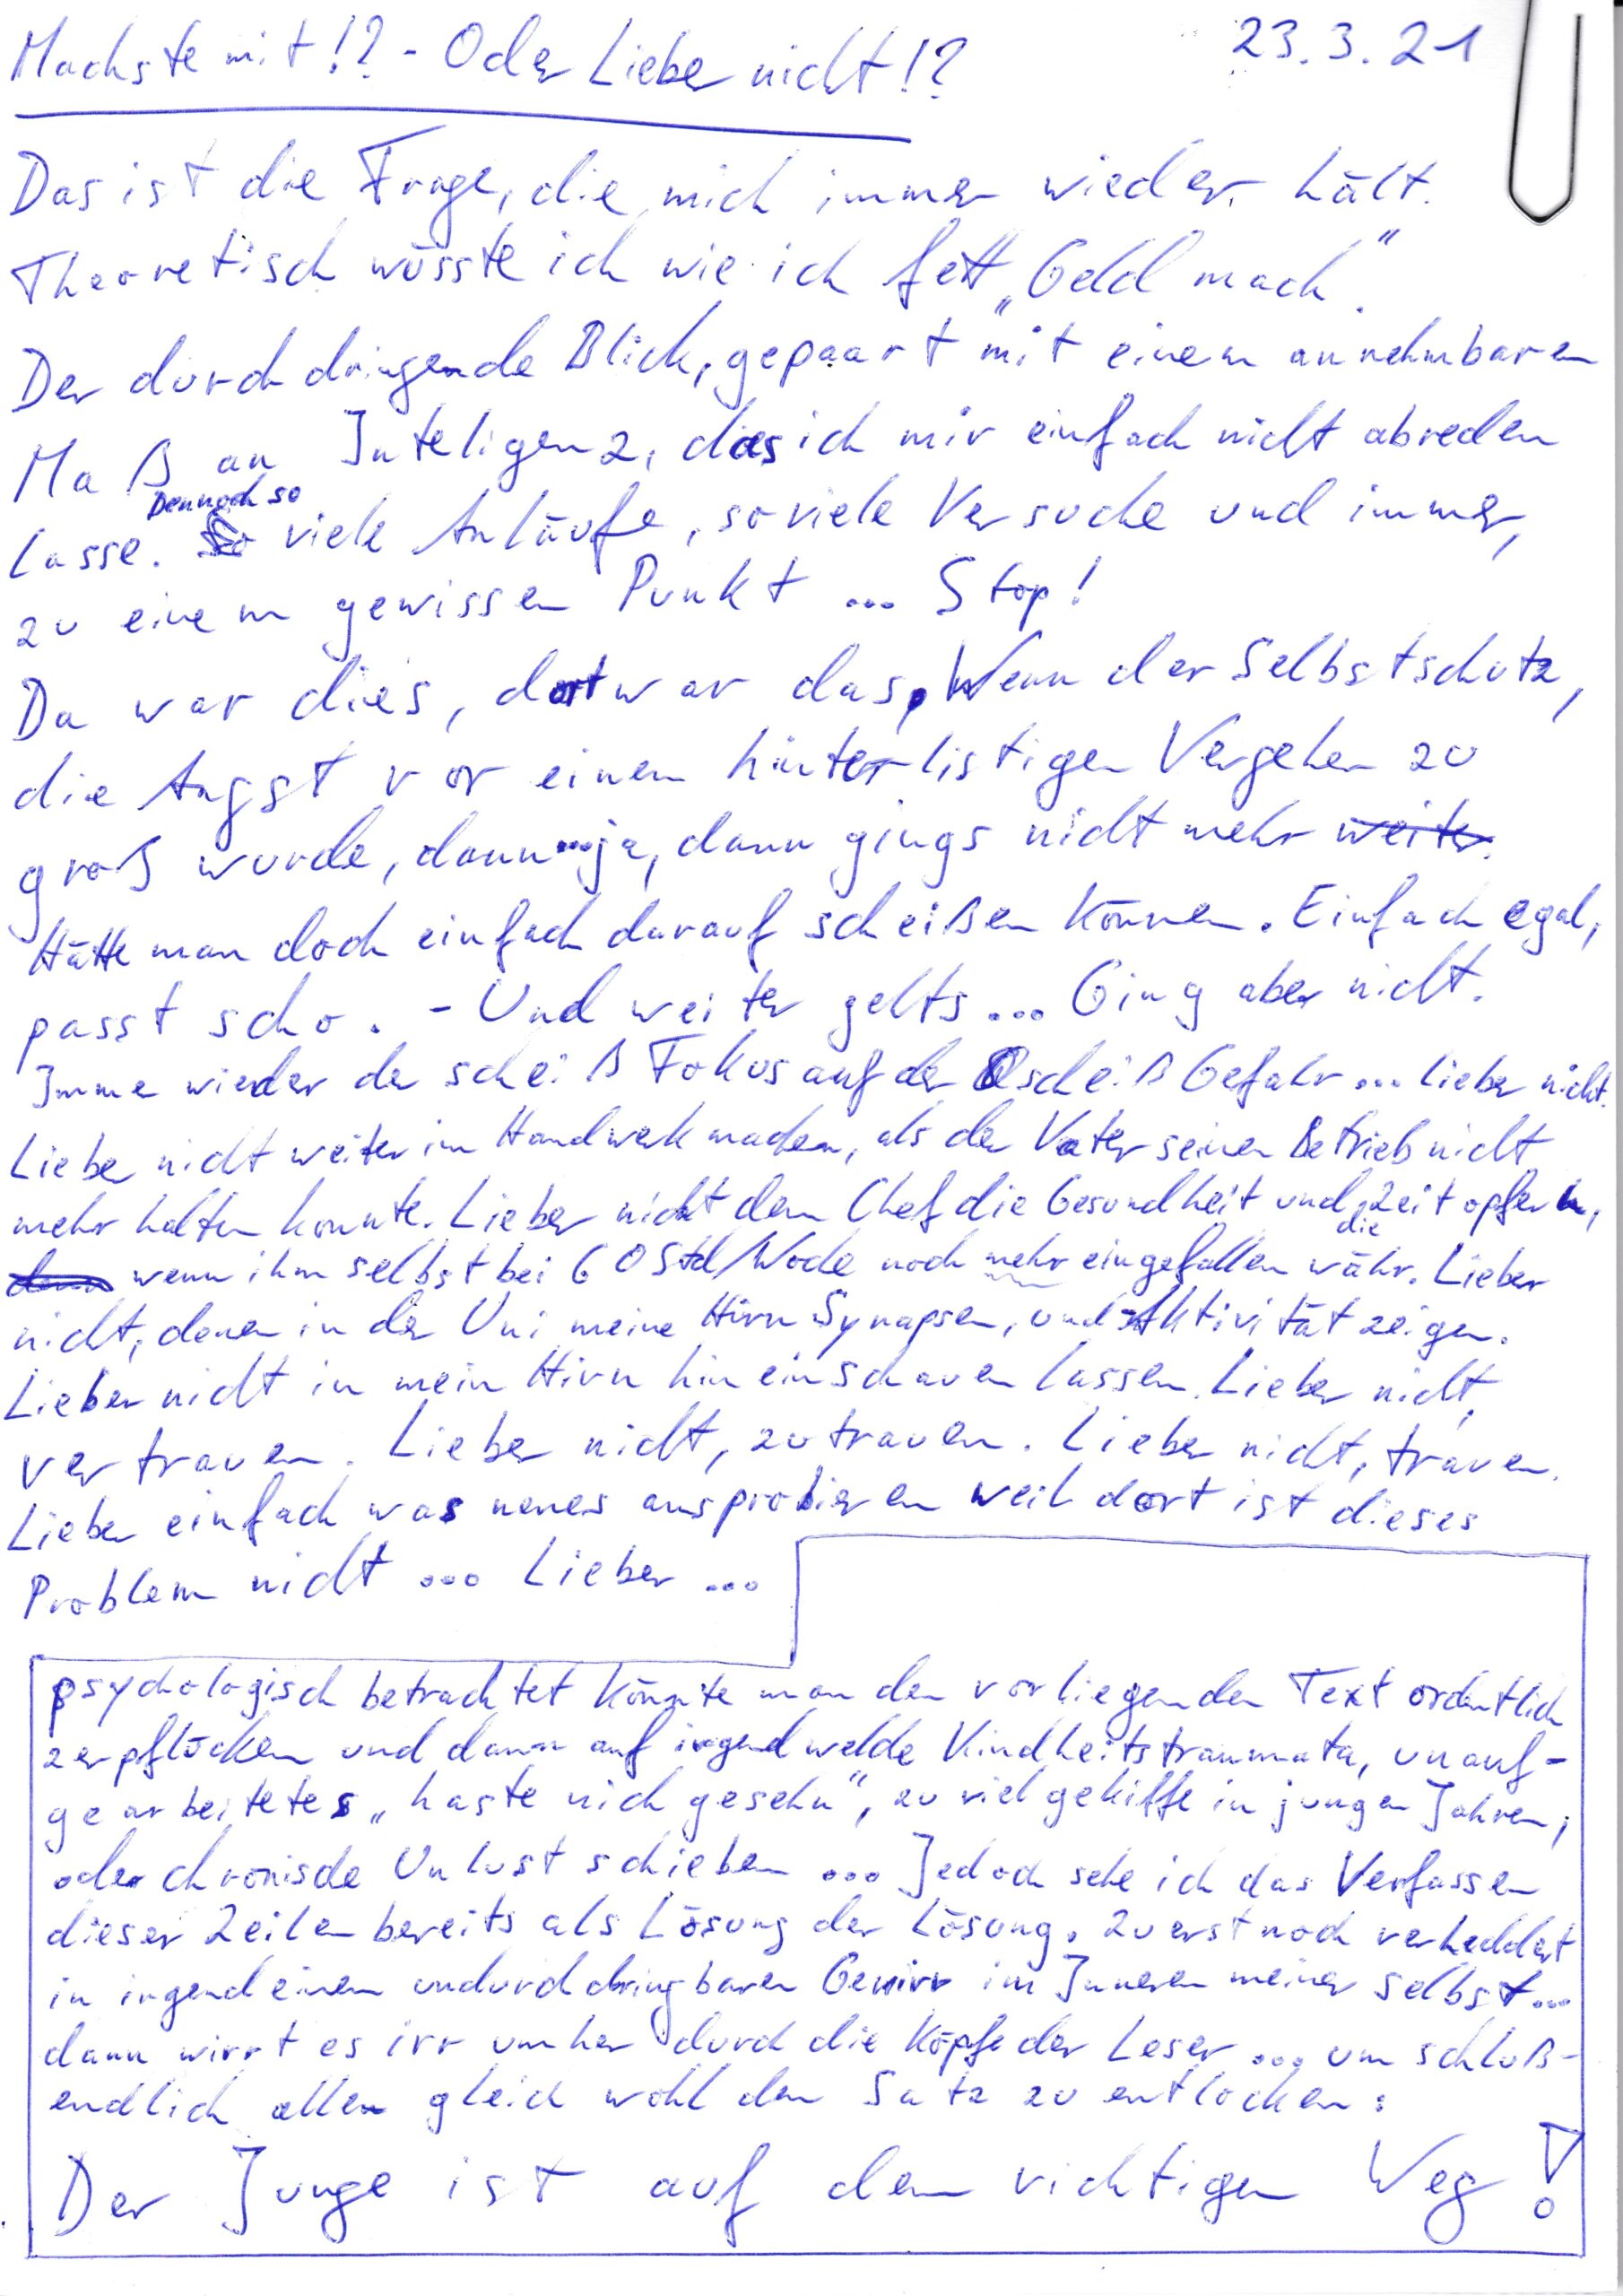 Machste mit!? - Oder Lieber nicht!?
23.3.21
Das ist die Frage, die mich immer wieder hält.
Theoretisch wüsste ich wie ich fett „Geld mach".
Der durchdringende Blick, gepaart mit einem annehmbaren
Maß an Inteligenz, das ich mir einfach nicht abreden
Dennoch so
lasse. viele Anläufe, soviele Versuche und immer,
zu einem gewissen Punkt ... Stop!
Da war dies, dort war das, Wenn der Selbstschutz,
die Angst vor einem hinterlistigen Vergehen zu
groß wurde, dann...ja, dann gings nicht mehr weiter.
Hätte man doch einfach darauf scheißen können. Einfach egal,
passt scho. - Und weiter gehts... Ging aber nicht.
Imme wieder der scheiß Fokus auf der scheiß Gefahr ... lieber nicht.
Lieber nicht weiter im Handwerk machen, als der Vater seinen Betrieb nicht
mehr halten konnte. Lieber nicht dem Chef die Gesundheit und Zeit opfern,
die
wenn ihm selbst bei 60 Std/Woche noch mehr eingefallen währ. Lieber
nicht, denen in der Uni meine Hirn Synapsen, und -Aktivität zeigen.
Lieber nicht in mein Hirn hineinschauen lassen. Lieber nicht,
vertrauen. Lieber nicht, zutrauen. Lieber nicht, trauen.
Lieber einfach was neues ausprobieren weil dort ist dieses
Problem nicht ... Lieber ...
psychologisch betrachtet könnte man den vorliegenden Text ordentlich
zerpflücken und dann auf irgendwelche Kindheitstraumata, unauf-
gearbeitetes „haste nich gesehn", zu viel gekiffe in jungen Jahren,
oder chronische Unlust schieben ... Jedoch sehe ich das Verfassen
dieser Zeilen bereits als Lösung der Lösung. Zuerst noch verheddert
in irgendeinem undurchdringbaren Gewirr im Inneren meiner selbst...
dann wirrt es irr umher durch die Köpfe der Leser ... um schluß-
endlich allen gleich wohl den Satz zu entlocken:
Der Junge ist auf dem richtigen Weg!